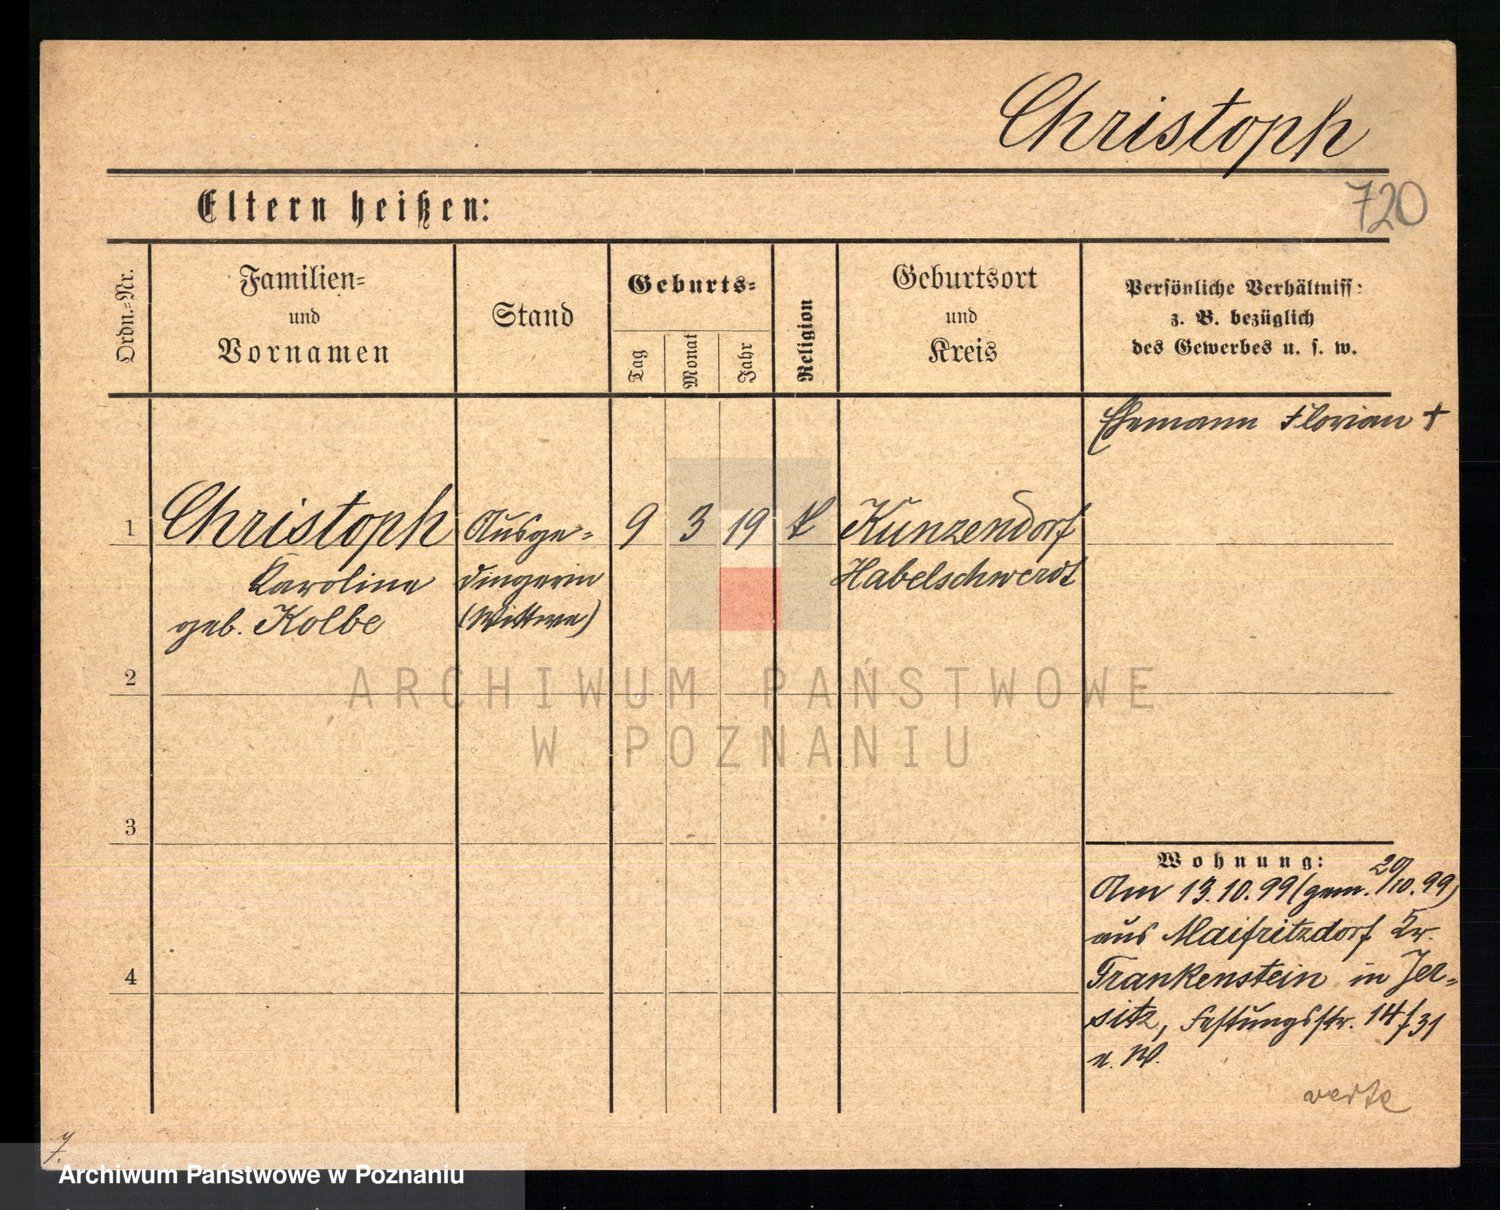 Christoph
720
Eltern heißen:
Ordn.-Nr.
Familien-
und
Vornamen
Stand
Geburts-
Tag
Monat
Jahr
Religion
Geburtsort
und
Kreis
Persönliche Verhältniss:
z. B. bezüglich
des Gewerbes u. s. w.
Ehemann Florian +
1
Christoph
Karoline
geb. Kolbe
Ausge-
dingerin
(Wittwe)
9 3 19 k
Kunzendorf
Habelschwerdt
2
3
4
Wohnung:
Am 13.10.99 (gem. 20/10.99)
aus Maifritzdorf Kr.
Frankenstein in Jer-
sitz, Festungsstr. 14 f/31
verte
ARCHIWUM PAŃSTWOWE
W POZNANIU
Archiwum Państwowe w Poznaniu